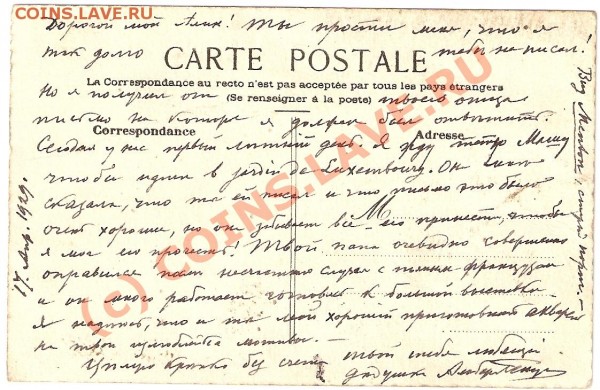 COINS.LAVE.RU
Дорогой мой Алик! Ты прости меня, что я
так долго тебе не писал!
CARTE POSTALE
La Correspondance au recto n'est pas acceptée par tous les pays étrangers
(Se renseigner à la poste)
Но я получил от твоего отца
письмо на которое я должен был ответить.
Correspondance
Adresse
Сегодня у нас первый летний день. Я жду
чтобы идти в jardin de Luxembourg. Он мне
сказала, что ты ей писал и что письмо это было
очень хорошее, но он забывает все его принести, чтобы
я мог его прочесть! Твой папа очевидно совершенно
оправился после несчастного случая с
и он много работает готовясь к большой выставке.
я надеюсь, что и ты мой хороший приготовишь акварели
на твои мотивы.
Целую крепко без счета твой тебя любящий
дедушка
17 1929.
Вид Menton, старый порт.
(c) COINS.LAVE.RU